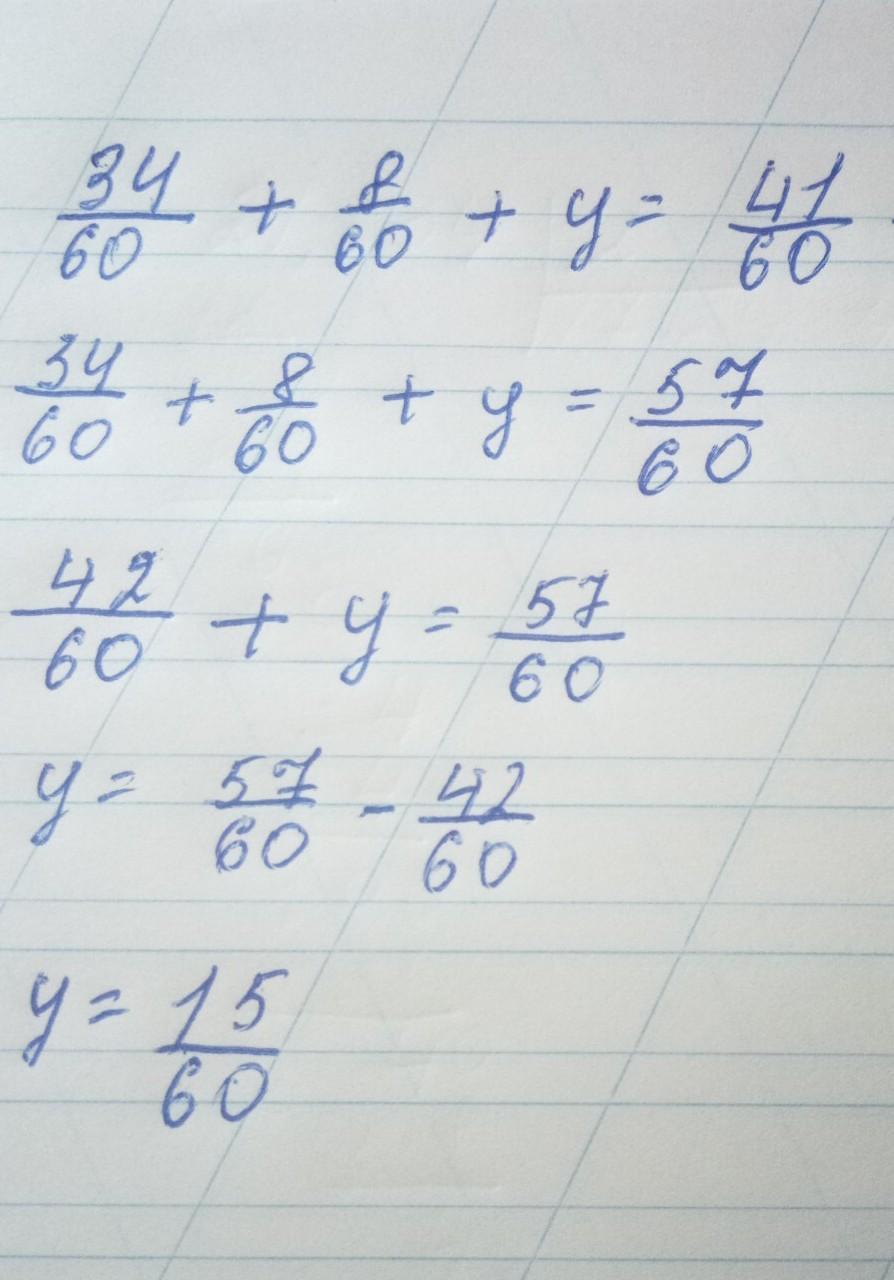 34/60 + 8/60 + y = 41/60
34/60 + 8/60 + y = 57/60
42/60 + y = 57/60
y = 57/60 - 42/60
y = 15/60